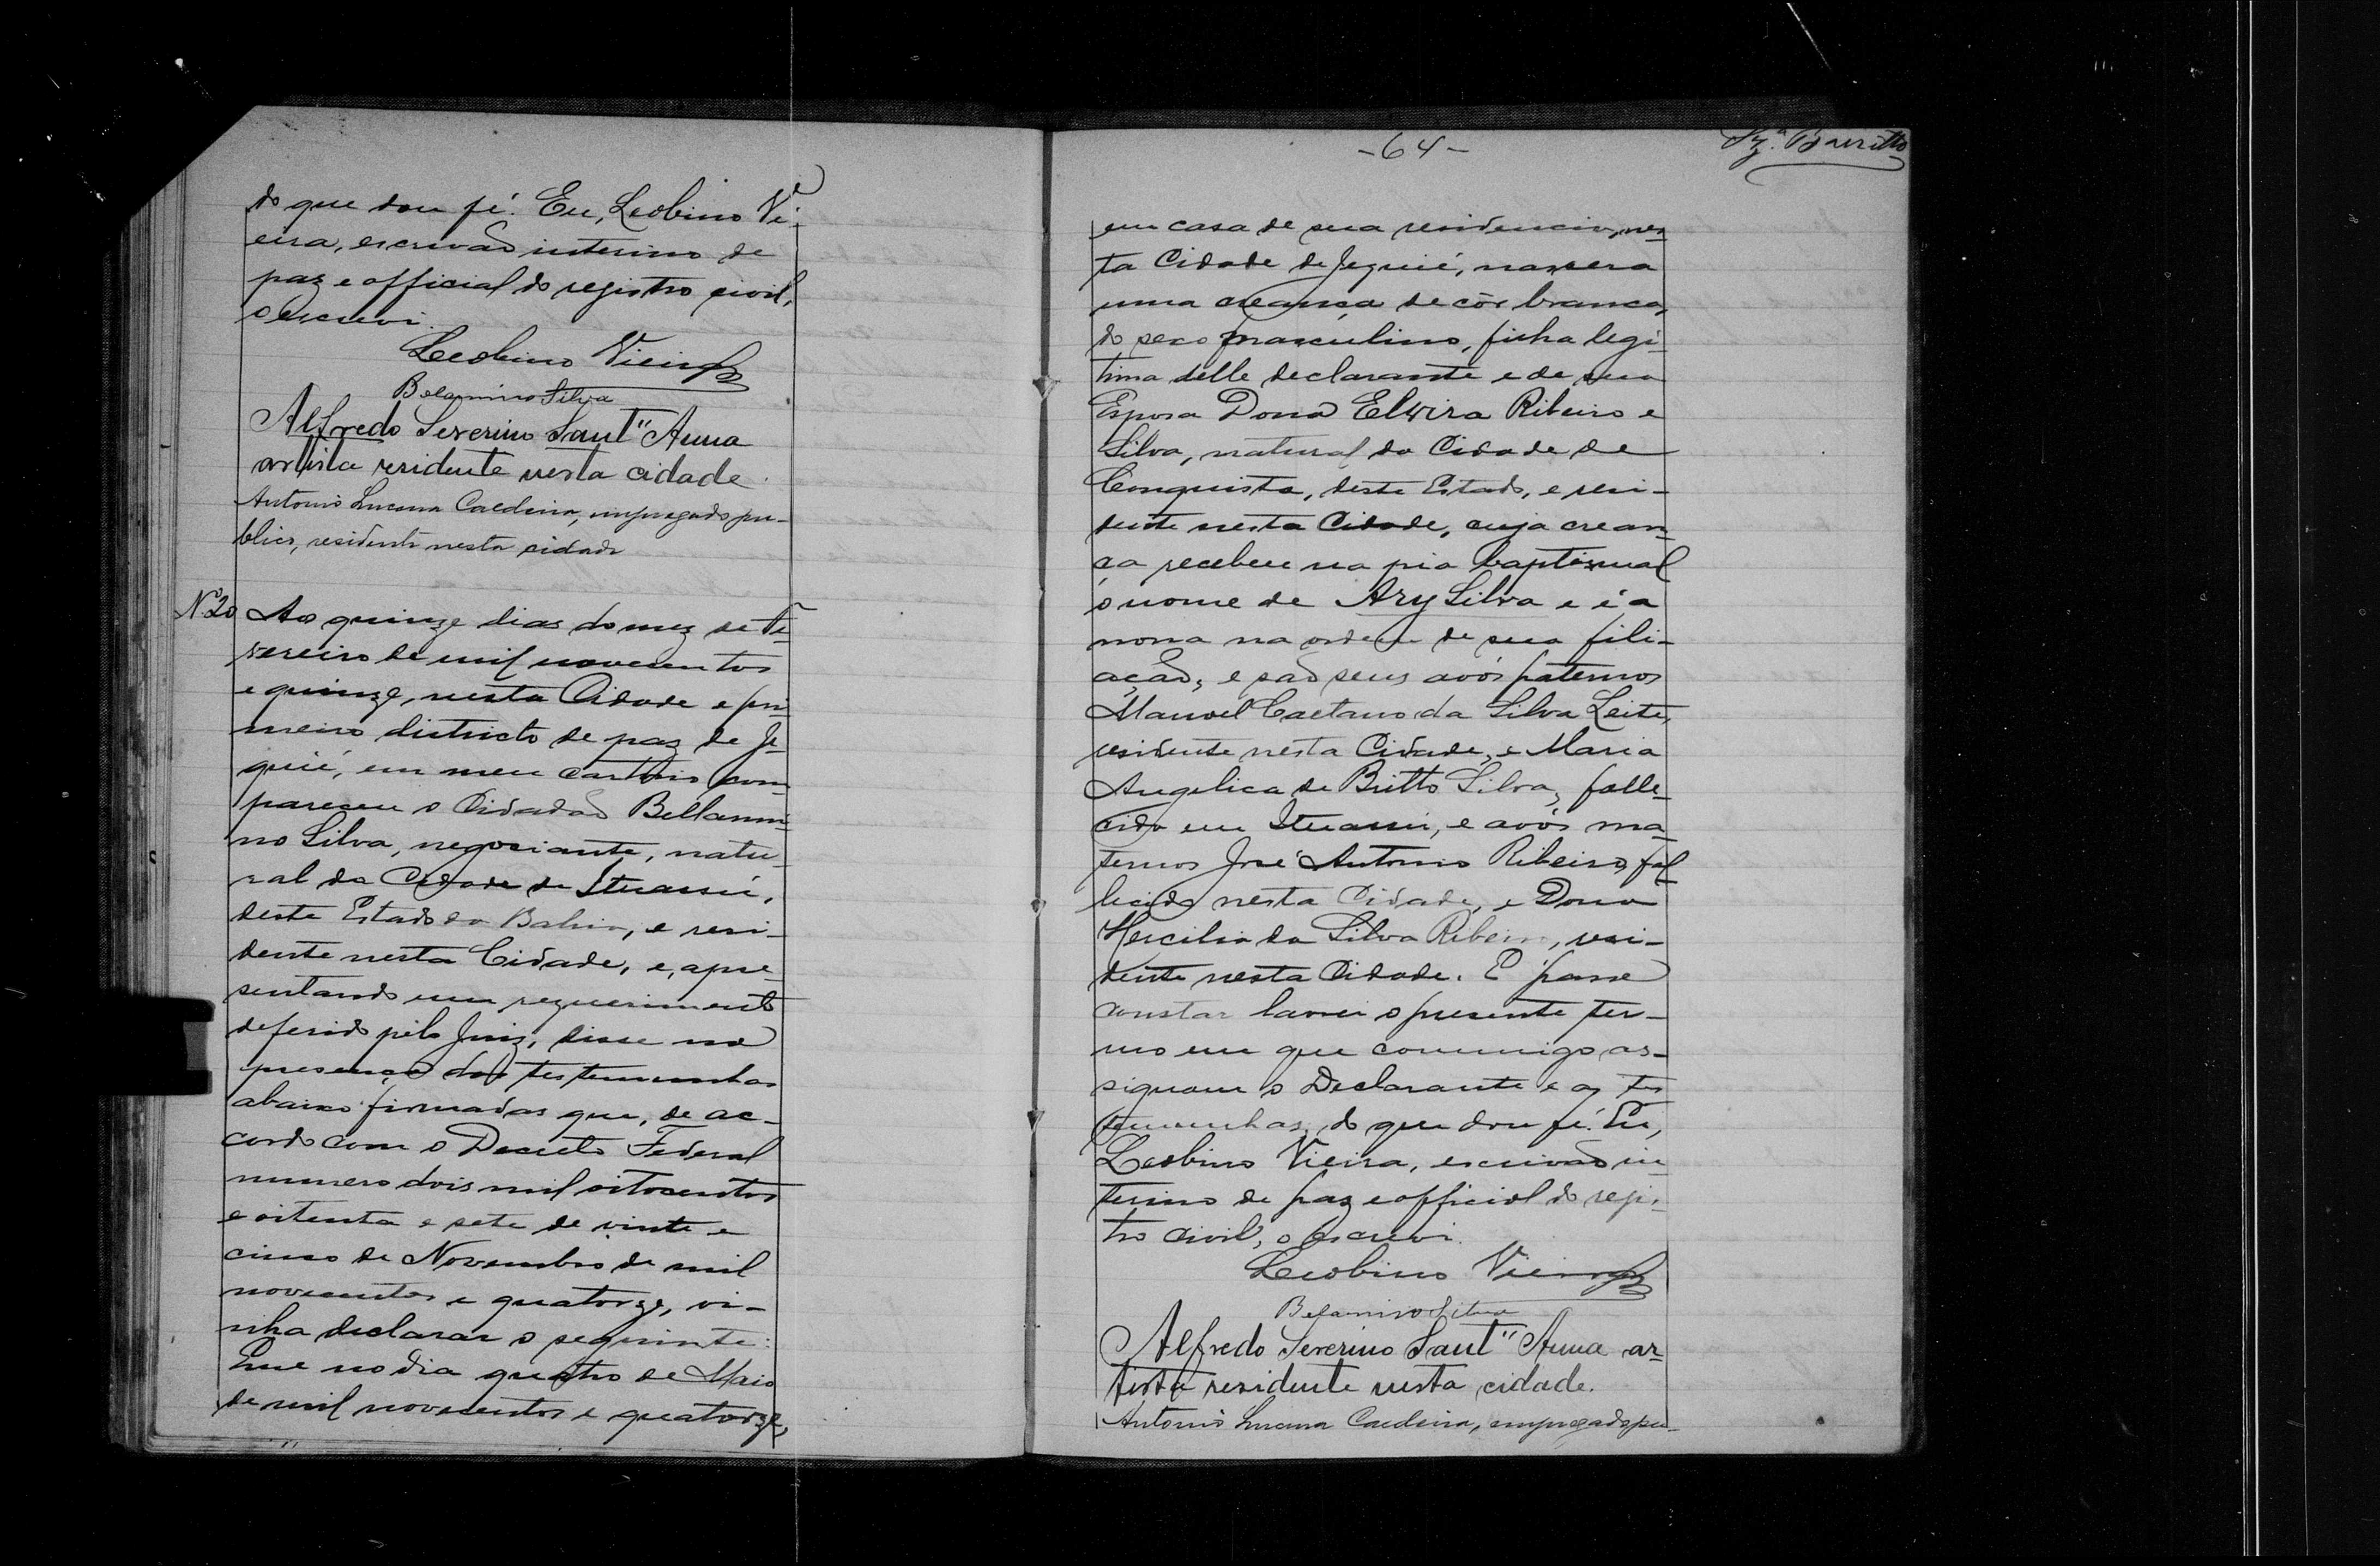 do que dou fé. Eu, Leobino Vi-
eira, escrivão interino de
paz e official do registro civil,
o escrevi.
Leobino Vieira
Belarmino Silva
Alfredo Severino Sant" Anna
artista residente nesta cidade.
Antonio Lucena Caldeira, empregado pu-
blico, residente nesta cidade
Nº 20 Aos quinze dias do mez de Fe-
vereiro de mil novecentos
e quinze, nesta Cidade e pri-
meiro districto de paz de Je-
quié, em meu cartorio com-
pareceu o Cidadão Bellarmi-
no Silva, negociante, natu-
ral da Cidade de Ituassú,
deste Estado da Bahia, e resi-
dente nesta Cidade, e, apre-
sentando um requerimento
deferido pelo Juiz, disse na
presença das testemunhas
abaixo firmadas que, de ac-
cordo com o Decreto Federal
numero dois mil oitocentos
e oitenta e sete de vinte e
cinco de Novembro de mil
novecentos e quatorze, vi-
nha declarar o seguinte:
Que no dia quatro de Maio
de mil novecentos e quatorze,
-64-
em casa de sua residencia, nes-
ta Cidade de Jequié, nascera
uma creança de côr branca,
do sexo masculino, filha legi-
tima delle declarante e de sua
Esposa Dona Elvira Ribeiro e
Silva, natural da Cidade de
Conquista, deste Estado, e resi-
dente nesta Cidade, cuja crean-
ça recebeu na pia baptismal
o nome de Ary Silva e é a
nona na ordem de sua fili-
ação, e são seus avós paternos
Manoel Caetano da Silva Leite,
residente nesta Cidade, e Maria
Angelica de Britto Silva, falle-
cida em Ituassú, e avós ma-
ternos José Antonio Ribeiro, fal-
lecido nesta Cidade, e Dona
Hercilia da Silva Ribeiro, resi-
dente nesta Cidade. E para
constar lavrei o presente ter-
mo em que commigo as-
signam o Declarante e as tes-
temunhas, do que dou fé. Eu,
Leobino Vieira, escrivão in-
terino de paz e official do regis-
tro civil, o escrevi.
Leobino Vieira
Belarmino Silva
Alfredo Severino Sant" Anna ar-
tista residente nesta cidade.
Antonio Lucena Caldeira, empregado pu-